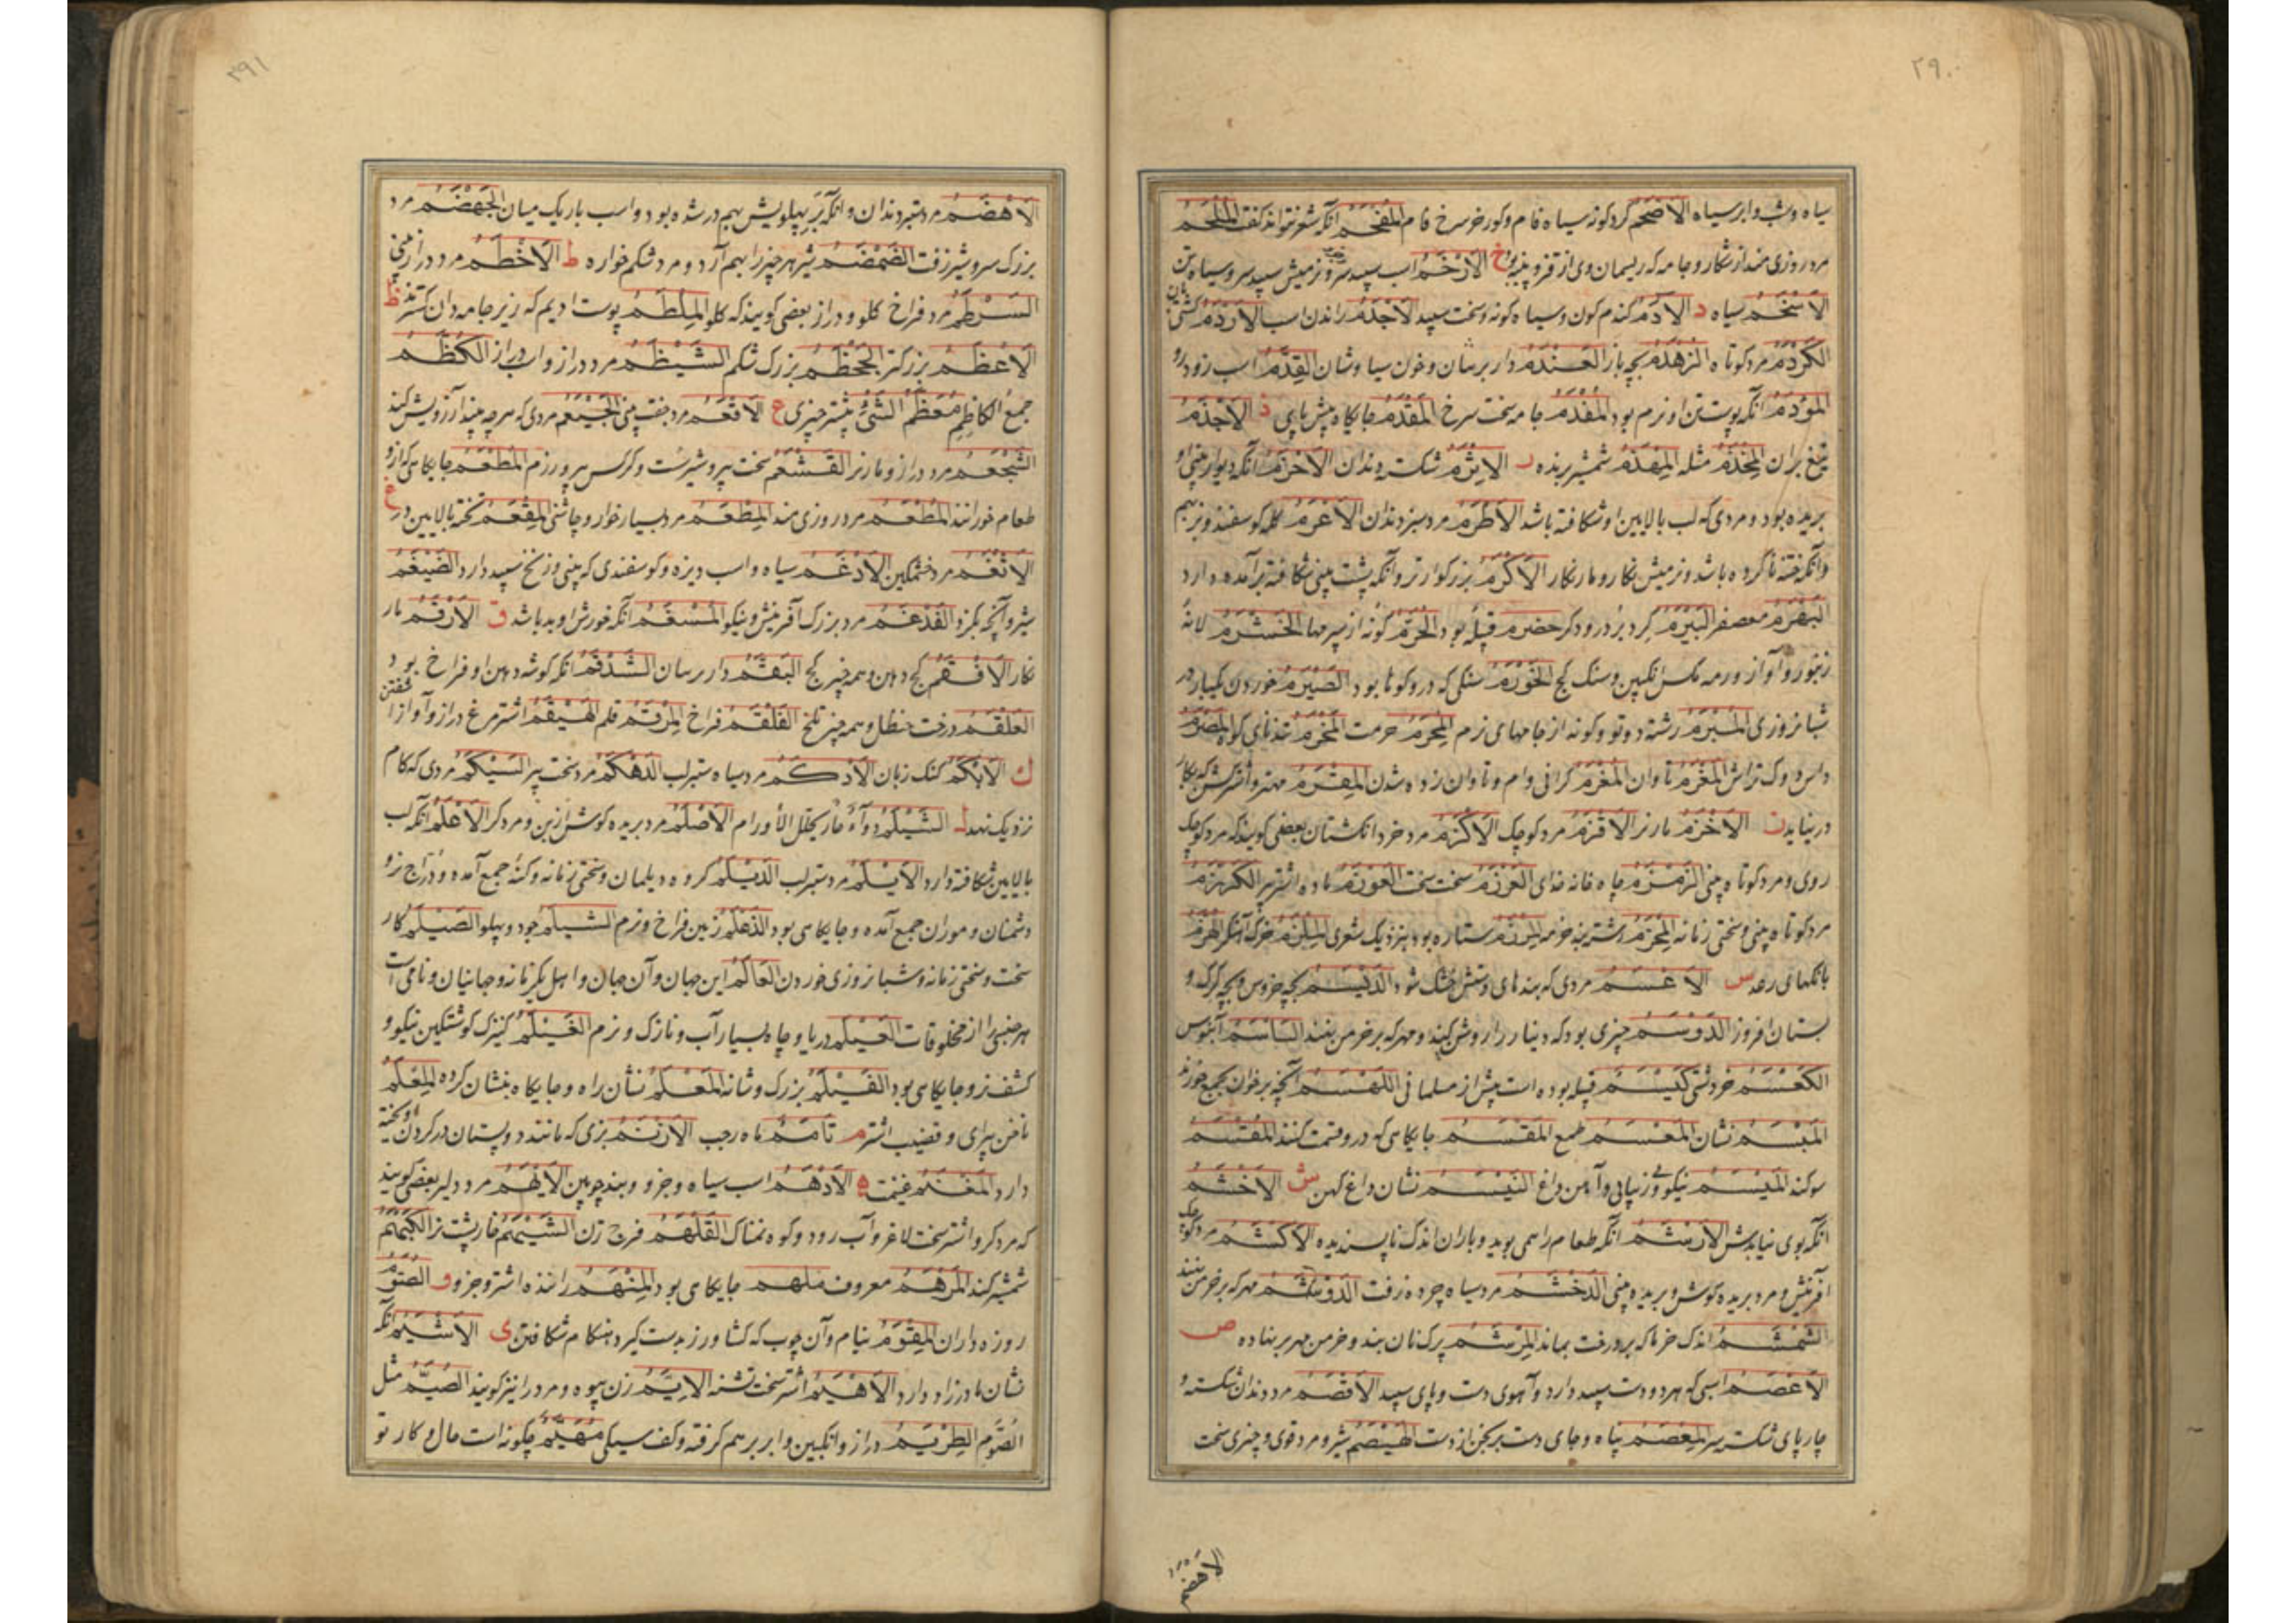 ۲۹۰
سیاه وشب وابر سیاه الاصحم کرد کونه سیاه فام وکور خر سرخ فام المفحم انکه شعر نتواند کفت الملحم
مرد روزی مند از شکار و جامه که ریسمان وی از قز و پنبه بود خ الارخم اسب سپید سر و نر میش سپید سر و سیاه تن
الاسخم سیاه د الآدم کندم کون و سیاه کونه و سخت سپید الاجدم راندن اسب الاردم
الکردم مرد کوتاه الزهدم بچه باز العندم دار برنیان و خون سیاوشان القدم اسب زود رو
المؤدم انکه پوست تن او نرم بود المفدم جامه سخت سرخ المقدم جایکاه پیش پای ذ الاجذم
تیغ بران المخذم مثله المهذم شمشیر برنده ر الاثرم شکسته دندان الاخرم انکه دیوار بینی او
بریده بود و مردی که لب بالایین او شکافته باشد الاطرم مرد سبز دندان الاعرم کله کوسفند و بز بهم
وآنکه ختنه ناکرده باشد و نر میش نکار و مار نکار الاکرم بزرکوارتر وآنکه پشت بینی شکافته برآمده دارد
البهرم معصفر البیرم کرد بر درودکر حضرم قبیله بود الخرم کونه از سپرمها الخشرم لانه
زنبور و آواز و رمه مکس انکبین و سنک کج الخورم سنکی که درو کوها بود الصیرم خوردن یکبار در
شبانروزی المبرم رشته دوتو و کونه از جامهای نرم المحرم حرمت المخرم تندنای کوه المصرم
داس و کرتراش المغرم تاوان المغرم کرانی وام و تاوان زده شدن المقرم مهتر و اشتر کشن که بکار
در نیاید ز الاخزم مار نر الاقزم مرد کوچک الاکزم مرد خرد انکشتان بعضی کویند که مرد کوچک
روی و مرد کوتاه بینی الزمزم چاه خانه خدای العرزم سخت سخت العوزم ماده اشتر پیر الکرزم
مرد کوتاه بینی و سختی زمانه المحزم شتر بند خرمه المرزم ستاره بود بنزدیک شعری الملزم خرک آهنکر الهزم
بانکهای رعد س الاعسم مردی که بندهای دستش خشک شود الدیسم بچه خروس و بچه کرک و
بستان افروز الدوسم چیزی بود که دینار را روشن کند و مهر که بر خرمن نهند الساسم آبنوس
الکعسم خر دشتی کیسم قبیله بوده است پیش از مسلمانی اللهسم آنچه بر خوان بجمع خورند
المبسم نشان المعسم طمع المقسم جایکاهی که درو قسمت کنند المقسم
سوکند المیسم نیکویی و زیبایی و آهن داغ النیسم نشان داغ کهن ش الاخشم
انکه بوی نیابدش الارشم انکه طعام را همی بوید و باران اندک ناپسندیده الاکشم مرد کوچک
آفرینش و مرد بریده کوش و بریده بینی الدخشم مرد سیاه چرده زفت الدوشم مهر که بر خرمن نهند
الشمشم اندک خرما که بر درخت بماند المرشم پرک نان بند و خرمن مهر بر نهاده ص
الاعصم اسبی که هر دو دست سپید دارد و آهوی دست و پای سپید الاقصم مرد دندان شکسته و
چارپای شکسته سر المعصم پناه و جای دست برنجن از دست الهیصم شیر و مرد قوی و چیزی سخت
الاهضم
۲۹۱
الاهضم مرد ستبر دندان و انکه بر پهلویش بهم در شده بود و اسب باریک میان الجهضم مرد
بزرک سر و شیر زفت الضمضم شیر هر چیز را بهم آرد و مرد شکم خواره ط الاخطم مرد دراز بینی
السرطم مرد فراخ کلو و دراز بعضی کویند که کلو الملطم پوست ادیم که زیر جامه دان کسترند ظ
الاعظم بزرکتر الجحظم بزرک شکم الشیظم مرد دراز و اسب دراز الکظم
جمع الکاظم معظم الشئ بیشتر چیزی ع الاقعم مرد جفت بینی الجیعم مردی که هر چه بیند آرزویش کند
الشجعم مرد دراز و مار نر القشعم سخت پیر و شیر است و کرکس پیر و رزم المطعم جایکاهی که ازو
طعام خورانند المطعم مرد روزی مند المطعم مرد بسیار خوار و چاشنی المقعم تخته بالایین در غ
الاثغم مرد خشمکین الادغم سیاه و اسب دیزه و کوسفندی که بینی و زنخ سپید دارد الضیغم
شیر و آنچه بکزد الفدغم مرد بزرک آفرینش و نیکو المسغم انکه خورش او بد باشد ق الارقم مار
نکار الافقم کج دهن و همه چیز کج البقم دار برنیان الشدقم انکه کوشه دهن او فراخ بود
العلقم درخت حنظل و همه چیز تلخ الفلقم فراخ المرقم قلم الهیقم اشتر مرغ دراز و آواز
ک الابکم کنک زبان الادکم مرد سیاه ستبر لب الدهکم مرد سخت پیر السیکم مردی که کام
نزدیک نهد ل الشیلم دوآء حار یحلل الأورام الاصلم مرد بریده کوش از بن و مرد کر الاعلم انکه لب
بالایین شکافته دارد الایلم مرد ستبر لب الدیلم کروه دیلمان و سختی زمانه و کنه جمع آمده و دراج نر و
دشمنان و موران جمع آمده و جایکاهی بود الذعلم زمین فراخ و نرم الشیلم جود و پهلو الصیلم کار
سخت و سختی زمانه و شبانروزی خوردن العالم این جهان و آن جهان و اهل یکزمانه و جهانیان و نامی است
هر جنسی را از مخلوقات العیلم دریا و چاه بسیار آب و نازک و نرم الغیلم کنیزک کوشتکین نیکو و
کشف نر و جایکاهی بود الفیلم بزرک و شانه المعلم نشان راه و جایکاه بنشان کرده المعلم
ناخن پیرای و قضیب اشتر م تامم ماه رجب الارنم بزی که مانند دو پستان در کردن آویخته
دارد المغنم غنیمت ه الادهم اسب سیاه و جزو و بند چوبین الایهم مرد دلیر بعضی کویند
که مرد کر و اشتر سخت لاغر و آب رود و کوه نمناک القلهم فرج زن الشیهم خارپشت نر الکهم
شمشیر کند المرهم معروف ملهم جایکاهی بود المنهم راننده اشتر و جزو و الصوم
روزه داران المقوم نیام و آن چوب که کشاورز بدست کیرد هنکام شکافتن ی الاشیم انکه
نشان مادرزاد دارد الاهیم اشتر سخت تشنه الایم زن بیوه و مرد را نیز کویند الصیم مثل
الصوم الطریم دراز و انکبین و ابر بر هم کرفته و کف سیکی مهیم چکونه است حال و کار تو